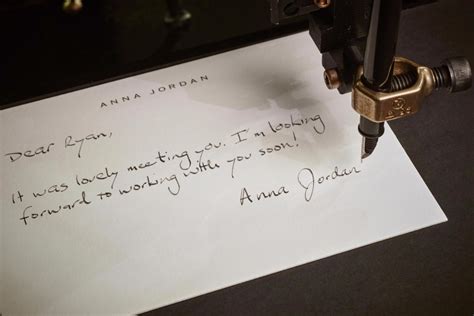 ANNA JORDAN
Dear Ryan,
It was lovely meeting you. I'm looking
forward to working with you soon.
Anna Jordan